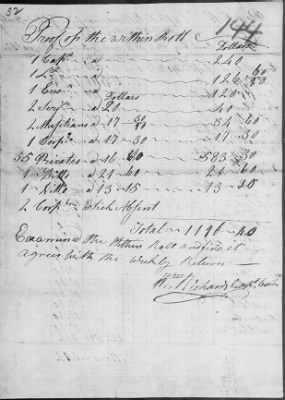 32
144
Proof of the within Roll
Dollars
1 Capt. a 240
1 Lt. a 126
1 Ens. a 120
Dollars
2 Serj. a 20 40
2 Musitians a 17 30
1 Corp. a 17 30 17 30
35 Privates a 16 60 583 30
1 Ditto a 21 60 21 60
1 Ditto a 13 15 13
2 Corp. Sick Absent
Total 1196 20
Examined the Within Roll and find it
agrees with the Weekly Return
Richards